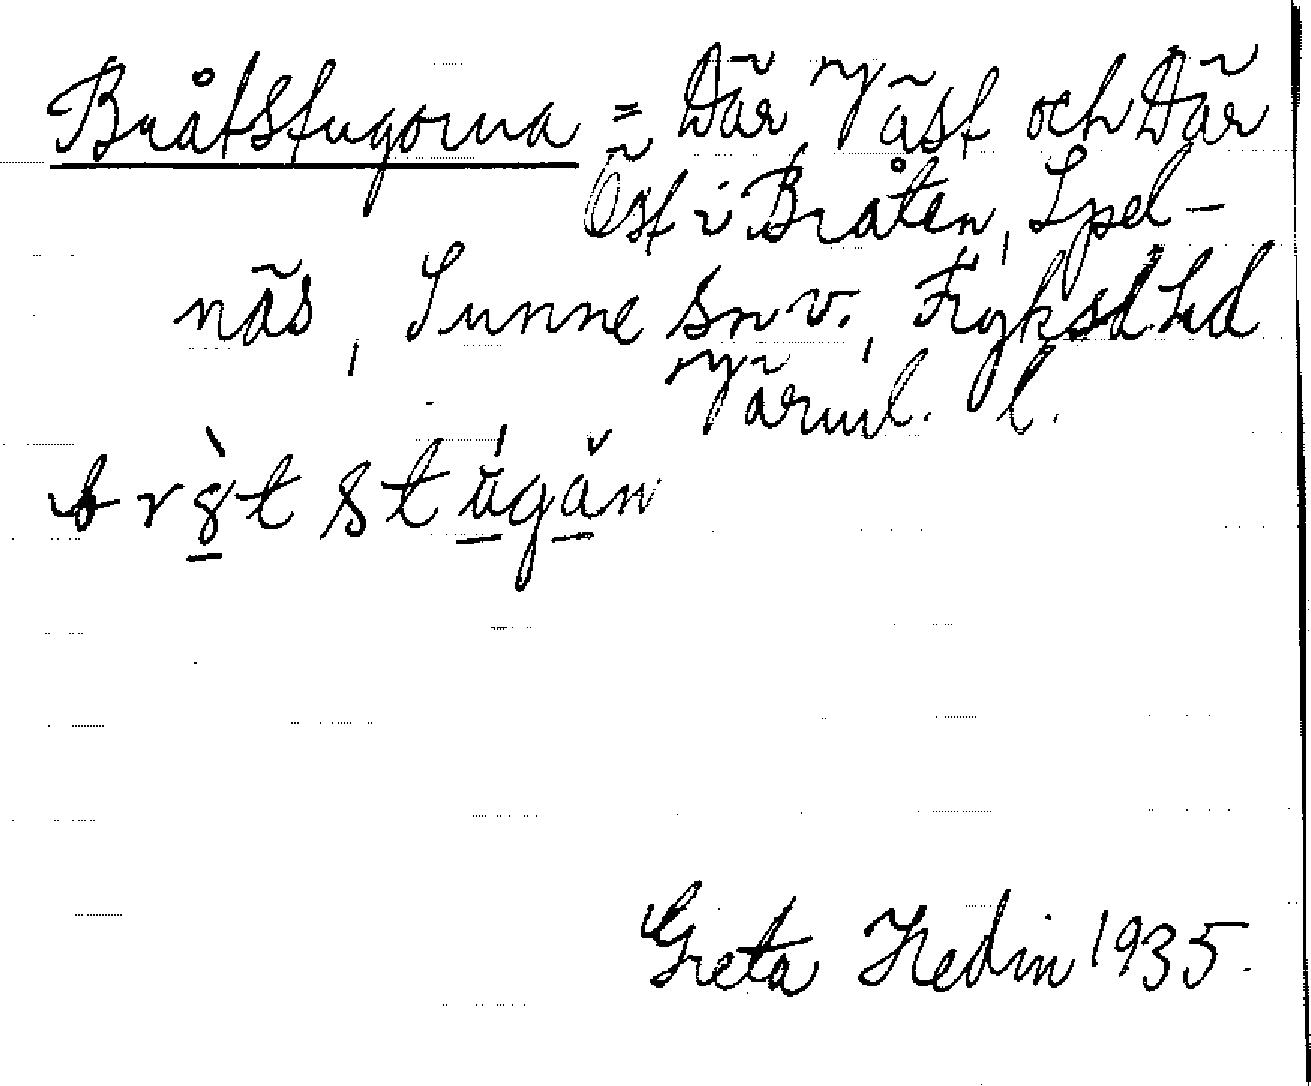 Bråtstugorna = Där Väst och Där
Öst i Bråten, Spel-
näs, Sunne snv., Fryksd. hd
Värml. l.
br8̠̀t stŭ̠́gå̠n
Greta Hedin 1935.